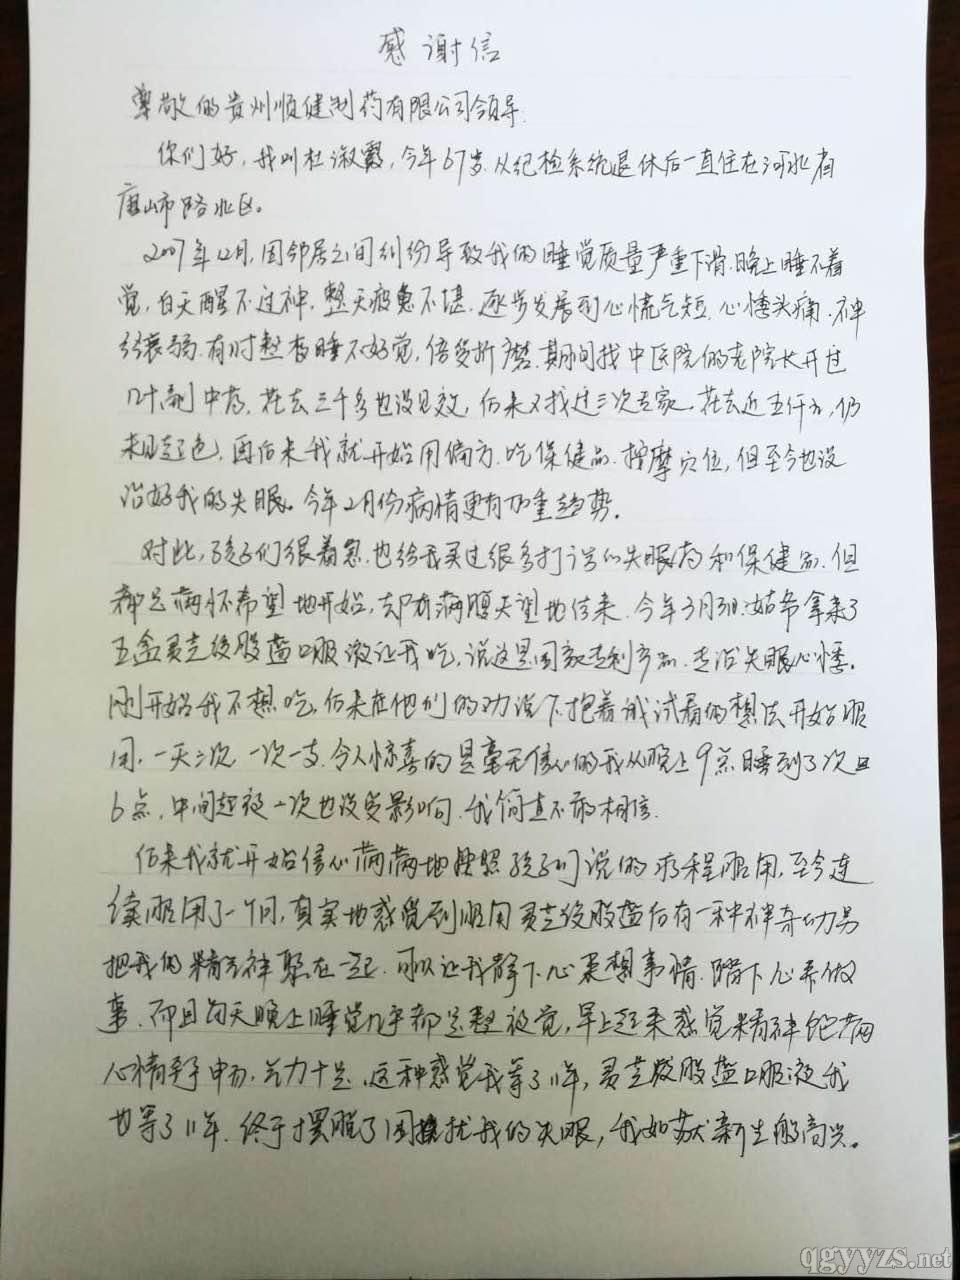 感谢信
尊敬的贵州顺健制药有限公司领导
你们好，我叫杜淑霞，今年67岁.从纪检系统退休后一直住在河北省
唐山市路北区。
2007年12月,因邻居之间纠纷导致我的睡觉质量严重下滑.晚上睡不着
觉，白天醒不过神，整天疲惫不堪.逐步发展到心慌气短,心悸头痛.神
经衰弱.有时整夜睡不好觉，倍受折磨.期间找中医院的老院长开过
几十副中药，花去三千多也没见效，后来又找过三次专家.花去近五仟元,仍
未见起色，再后来我就开始用偏方.吃保健品.按摩穴位，但至今也没
治好我的失眠。今年2月份病情更有加重趋势。
对此，孩子们很着急.也给我买过很多打广告的失眠药和保健品.但
都是满怀希望地开始，却有满腹失望地结束.今年3月 拿来了
五盒灵芝 口服液让我吃，说这是国家专利产品.专治失眠心悸。
刚开始我不想吃,后来在他们的劝说下.抱着试试看的想法开始服
用，一天三次 一次一支.令人惊喜的是毫无信心的我从晚上9点睡到了次日
6点，中间起夜一次也没受影响.我简直不敢相信.
后来我就开始信心满满地按照孩子们说的疗程服用，至今连
续服用了一个月，真实地感觉到服用灵芝 后有一种神奇功力
把我的精气神聚在一起.可以让我静下心来想事情.踏下心来做
事.而且每天晚上睡觉几乎都是整夜觉，早上起来感觉精神饱满
心情舒畅,气力十足.这种感觉我等了11年，灵芝 口服液我
也等了11年.终于摆脱了困扰我的失眠，我如获新生般高兴。
qgyyzs.net